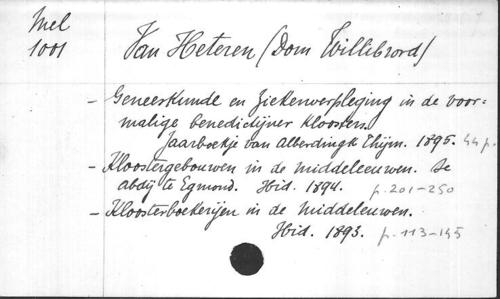 Mel
1001
Van Heteren (Dom Willibrord)
- Geneeskunde en Ziekenverpleging in de voor=
malige benedictijner Kloosters.
Jaarboekje van Alberdingk Thijm. 1895. 44 p.
- Kloostergebouwen in de middeleeuwen. De
abdij te Egmond. Ibid. 1894. p. 201-250
- Kloosterboekerijen in de middeleeuwen.
Ibid. 1893. p. 113-145